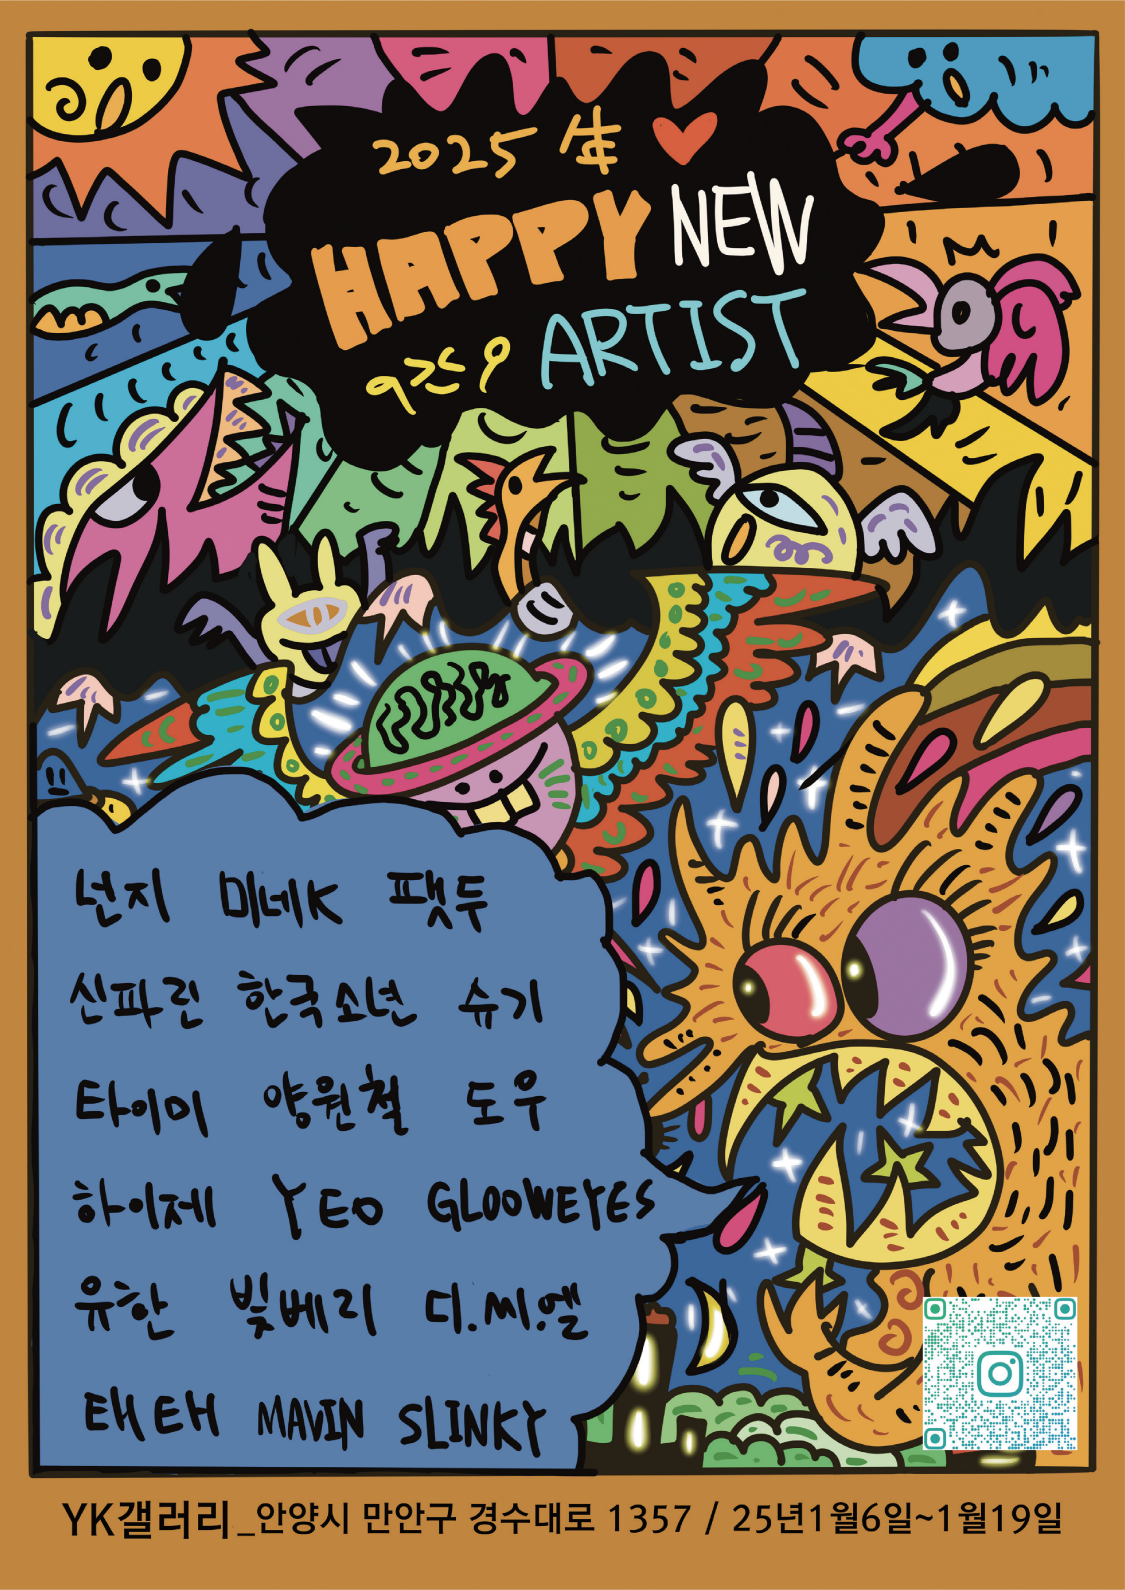 2025 生
HAPPY NEW
ARTIST
넌지 미네K 팻두
신파린 한국소년 슈기
타이미 양원철 도우
하이제 YEO GLOOWEYES
유한 빛베리 디.씨.엘
태태 MAVIN SLINKY
YK갤러리_안양시 만안구 경수대로 1357 / 25년1월6일~1월19일